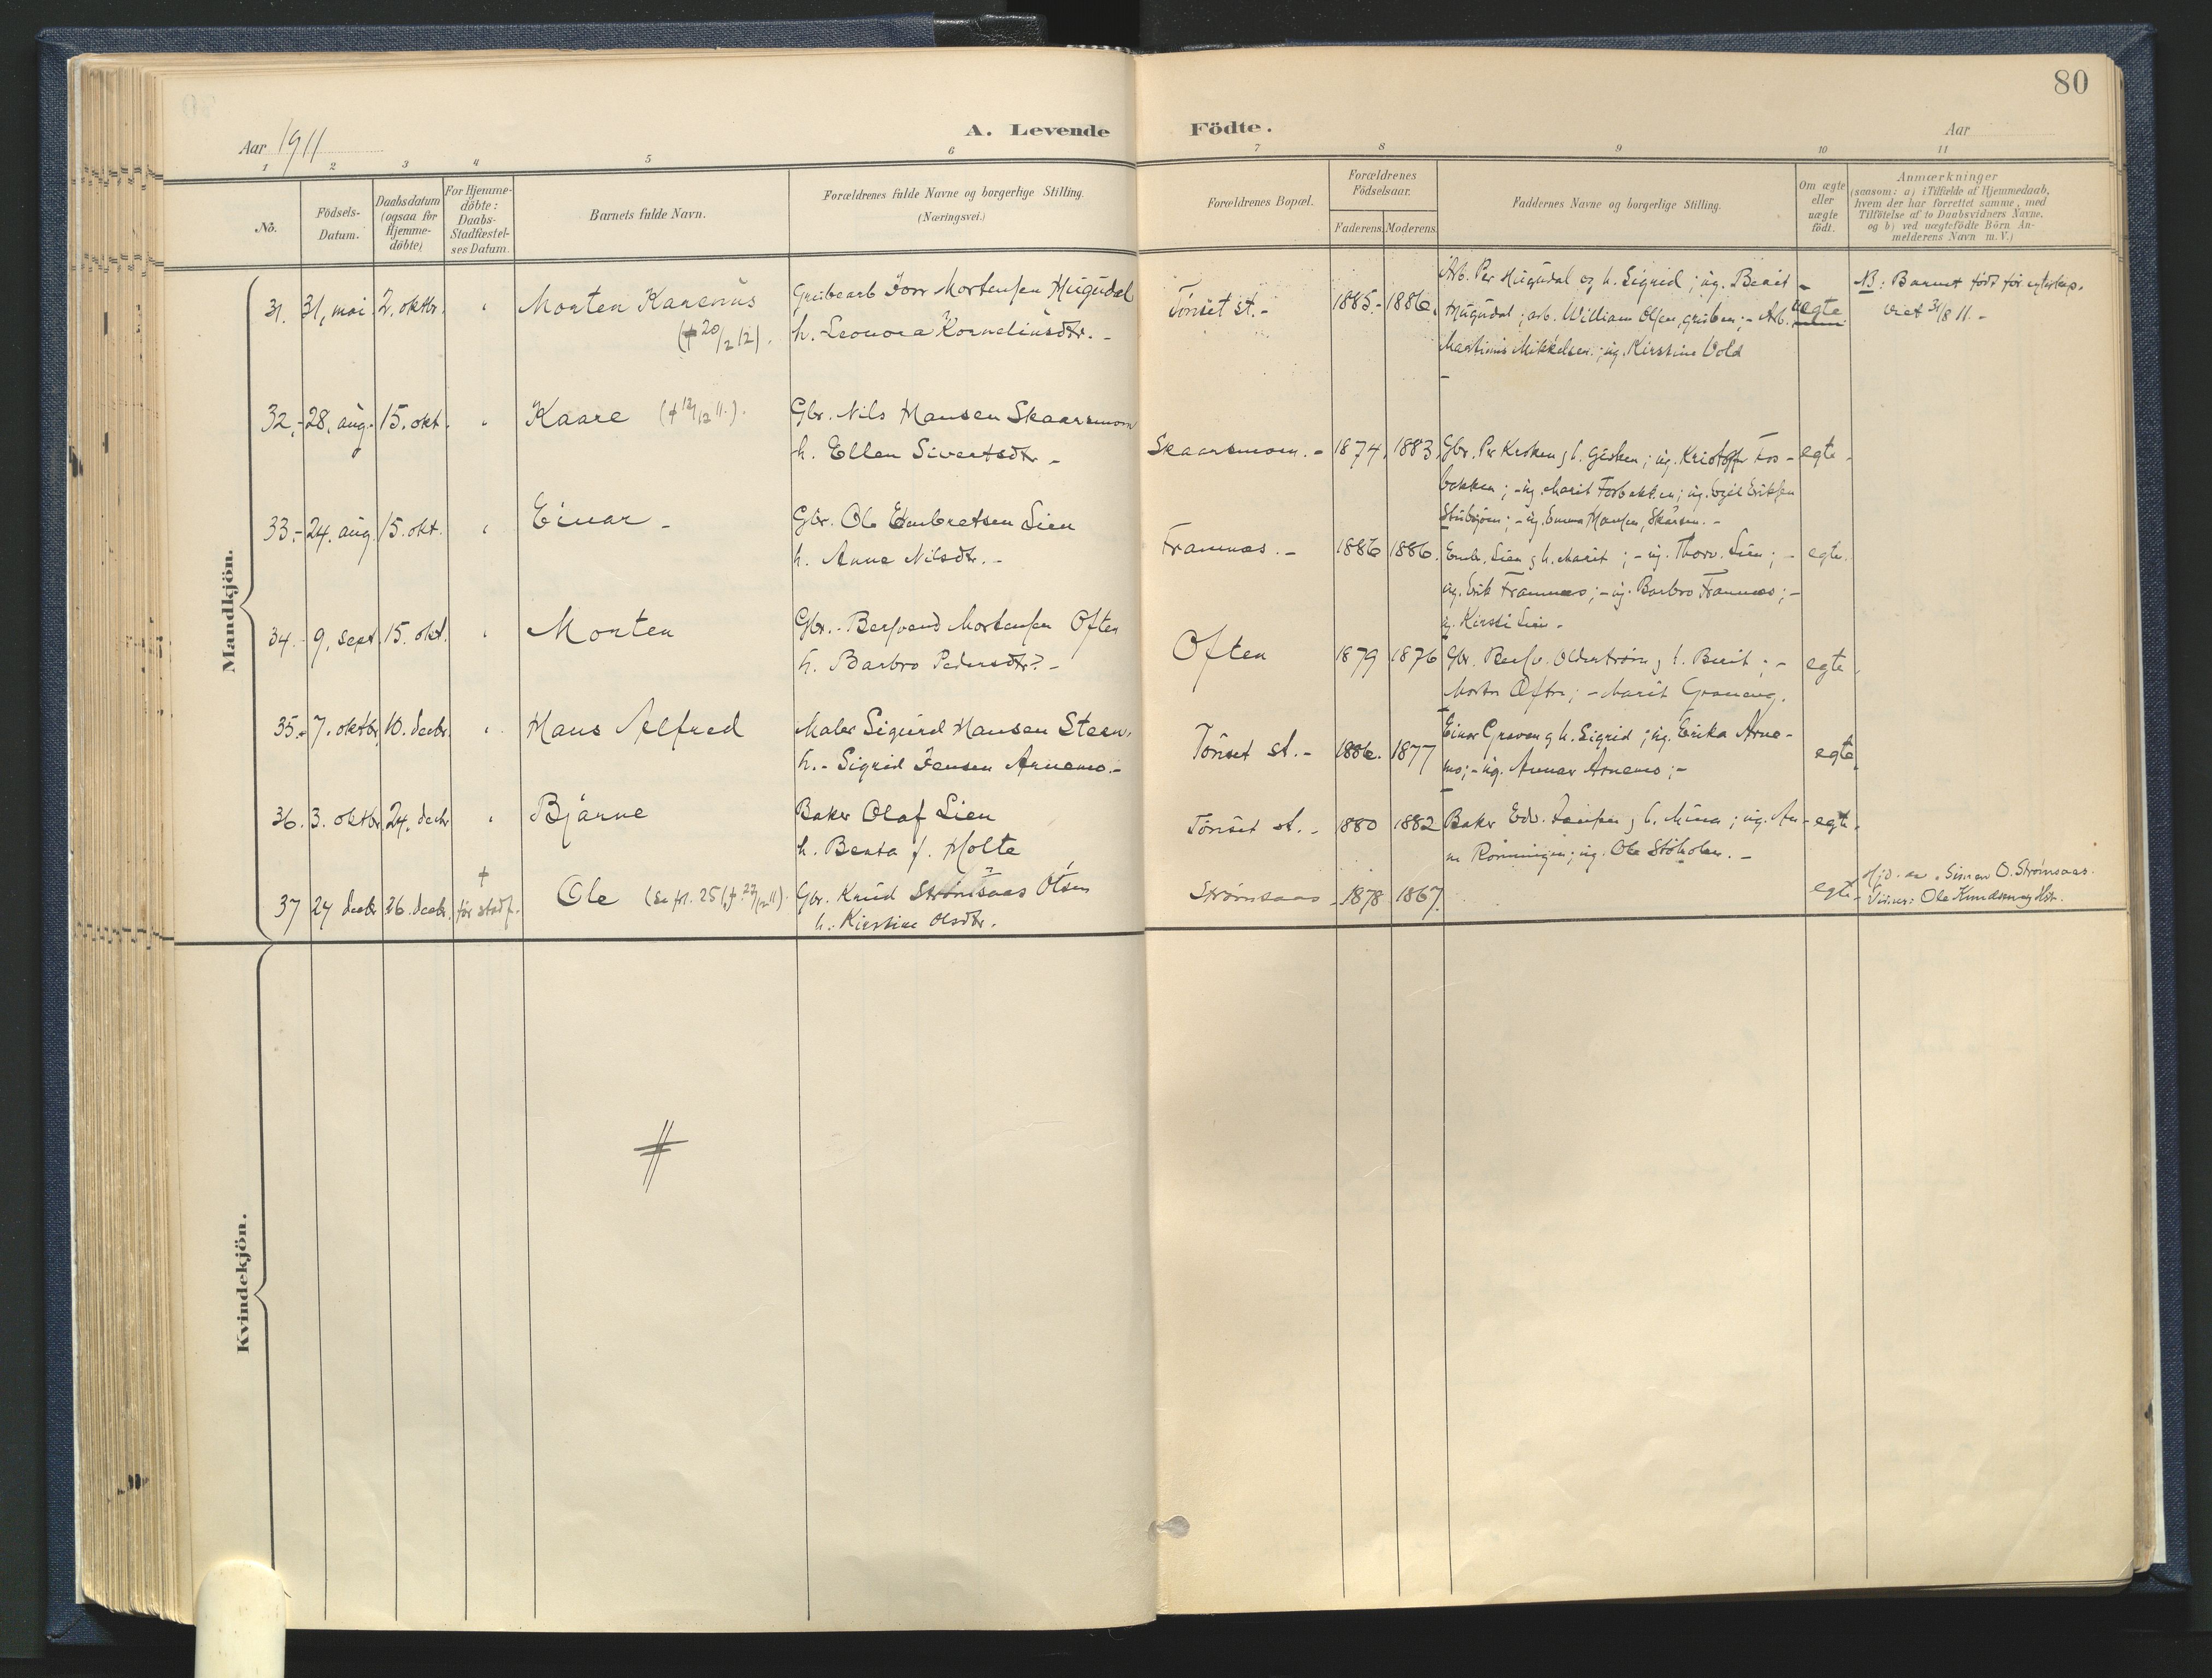 80
Aar 1911
A. Levende Födte.
Aar
1 2 3 4 5 6 7 8 9 10 11
No.
Födsels-Datum.
Daabsdatum (ogsaa for Hjemme-döbte)
For Hjemme-döbte: Daabs-Stadfæstel-ses Datum.
Barnets fulde Navn.
Forældrenes fulde Navne og borgerlige Stilling.
(Næringsvei.)
Forældrenes Bopæl.
Forældrenes Födselsaar.
Faderens. Moderens.
Faddernes Navne og borgerlige Stilling.
Om ægte eller uægte födt.
Anmærkninger
(saasom: a) i Tilfælde af Hjemmedaab,
hvem der har forrettet samme, med
Tilföielse af to Daabsvidners Navne,
og b) ved uægtefödte Börn An-
melderens Navn m. V.)
Mandkjön.
31. 31, mai 2. oktbr. " Morten Karenius
(† 20/2 12).
Grubearb Joer Mortensen Hugudal
h. Leonora Korneliusdtr. -
Tönset st. - 1885 - 1886.
Arb. Per Hugudal og h. Sigrid; ug. Berit -
Hugudal; arb. William Olsen, gruben; - Arb.
Martinus Mikkelsen; ug. Kirstine Vold
uegte
NB: Barnet född för egteskap.
viet 31/8 11. -
32. - 28. aug. 15. okt. " Kaare († 12/12 11.).
Gbr. Nils Hansen Skaarsmoen
h. Ellen Sivertsdtr -
Skaarsmoen. - 1874. 1883.
Gbr. Per Kroken g h. Gjerten; ug. Kristoffer Fos-
bakken; - ug. Marit Fosbakken; ug. Eriksen
Stubsjøen; - ug. Emma Hansen, Skårsm. -
egte -
33. - 24. aug. 15. okt. " Einar -
Gbr. Ole Embretsen Lien
h. Anne Nilsdtr. -
Framnæs. - 1886 1886.
Embr. Lien g h. Marit; - ug. Thorv. Lien; -
ug. Erik Framnæs; - ug. Barbro Framnæs; -
ug. Kirsti Lien -
egte.
34. - 9. sept. 15. okt. " Morten
Gbr. - Bersvend Mortensen Often
h. Barbro Pedersdtr? -
Often 1879 1876
Gbr. Bersv. Oldertrøen g h. Berit; -
Morten Often; - Marit Graneng.
egte.
35. - 7. oktbr. 10. decbr. " Hans Alfred
Maler Sigurd Hansen Steen.
h. - Sigrid Jensen Arnemo. -
Tönset st. - 1886. 1877
Einar Gravem g h. Sigrid; ug. Erika Arne-
mo; - ug. Annar Arnemo; -
egte.
36. 3. oktbr. 24. decbr " Bjarne
Baker Olaf Lien
h. Berta f. Holte
Tönset st. - 1880 1882
Baker Edv. g h. Mina; ug. An-
na Rønningen; ug. Ole Støholen. -
egte.
37 24 decbr 26. decbr. † før stadf. Ole (Se frl. 25 († 27/12 11).
Gbr. Knud Strømsaas Olsen
h. Kirstine Olsdtr.
Strømsaas - 1878 1867.
egte -
Hj.d. av Simen O. Strømsaas.
Vidner: Ole Knudsen og Hstr.
Kvindekjön.